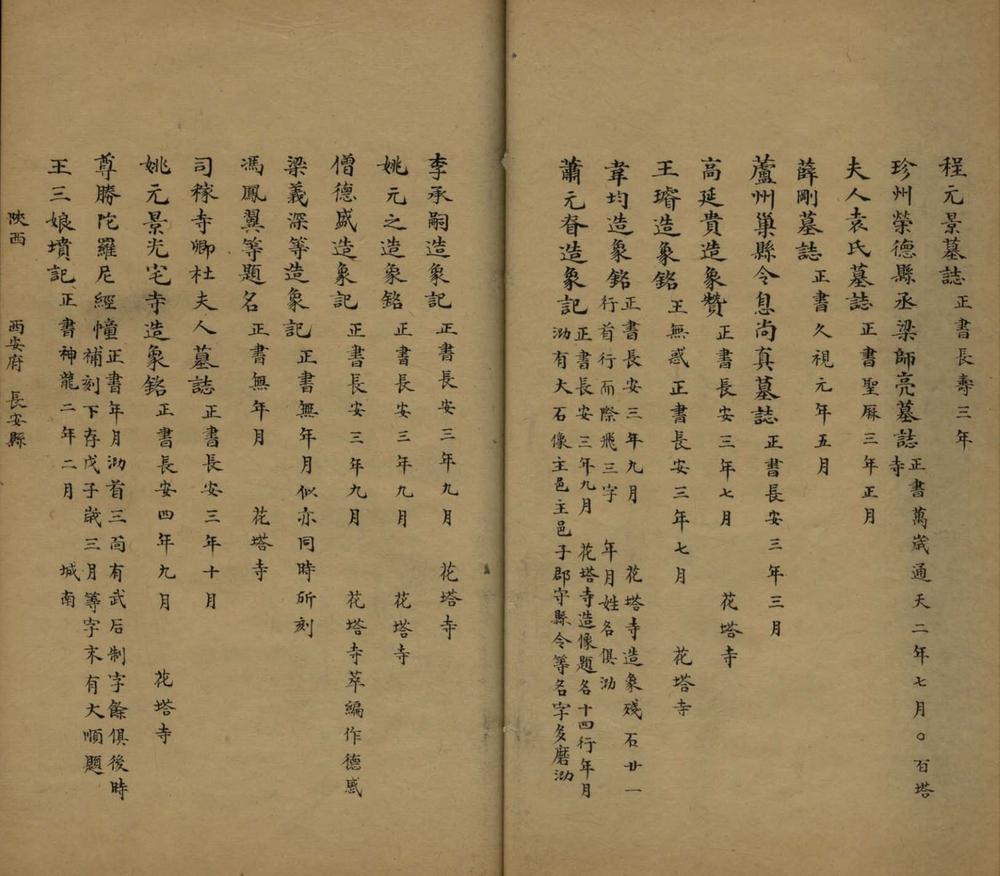 程元景墓誌 正書長壽三年
珍州榮德縣丞梁師亮墓誌 正書萬歲通天二年七月〇百塔寺
夫人袁氏墓誌 正書聖厤三年正月
薛剛墓誌 正書久視元年五月
蘆州巢縣令息尚真墓誌 正書長安三年三月
高延貴造象贊 正書長安三年七月 花塔寺
王璿造象銘 王無惑正書長安三年七月 花塔寺
韋均造象銘 正書長安三年九月 花塔寺造象殘石廿一
行首行而際飛三字 年月姓名俱泐
蕭元眘造象記 正書長安三年九月 花塔寺造像題名十四行年月
泐有大石像主邑主邑子郡守縣令等名字多磨泐
李承嗣造象記 正書長安三年九月 花塔寺
姚元之造象銘 正書長安三年九月 花塔寺
僧德感造象記 正書長安三年九月 花塔寺萃編作德感
梁義深等造象記 正書無年月似亦同時所刻
馮鳳翼等題名 正書無年月 花塔寺
司稼寺卿杜夫人墓誌 正書長安三年十月
姚元景光宅寺造象銘 正書長安四年九月 花塔寺
尊勝陀羅尼經幢 正書年月泐首三面有武后制字餘俱後時
補刻下存戊子歲三月等字末有大順題
王三娘墳記 正書神龍二年二月 城南
陝西 西安府 長安縣